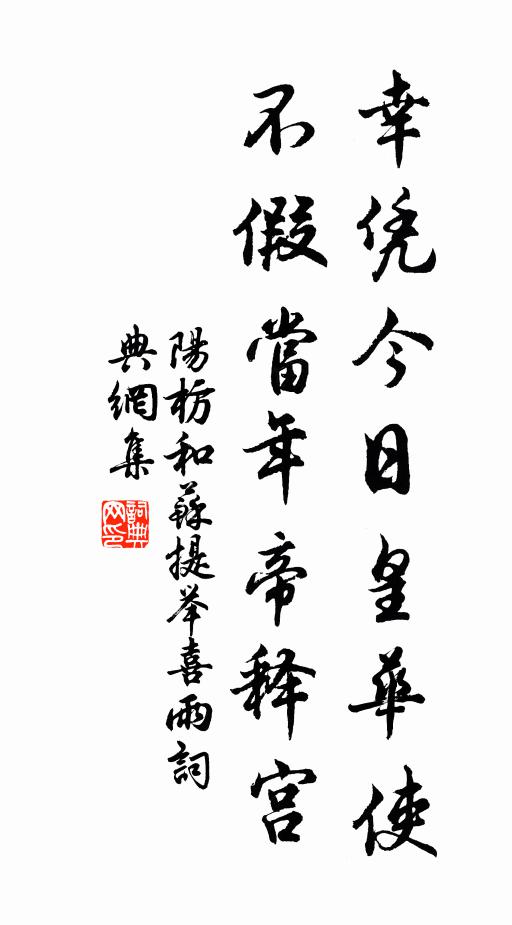 幸凭今日皇華使
不假當年帝释宫
陽枋和蘇提举喜雨詞
典網集
詞典网印